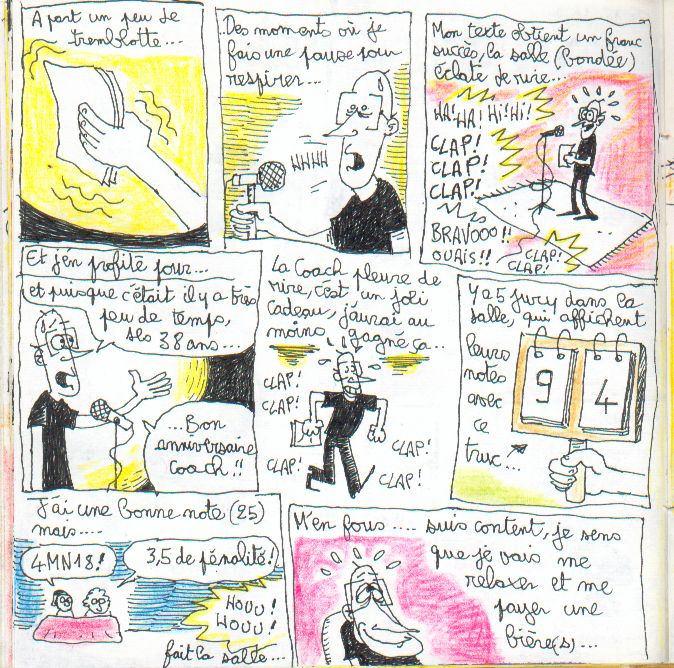 A part un peu de
tremblotte...
Des moments où je
fais une pause pour
respirer...
HHHH
Mon texte obtient un franc
succès, la salle (bondée)
éclate de rire...
HA! HA! Hi! Hi!
CLAP!
CLAP!
CLAP!
BRAVOOO!!
OUAIS!!
CLAP!
CLAP!
Et j'en profite pour...
et puisque c'était il y a très
peu de temps,
ses 38 ans...
...Bon
anniversaire
coach!!
La Coach pleure de
rire, c'est un joli
cadeau, j'aurai au
moins gagné ça...
CLAP!
CLAP!
CLAP!
CLAP!
CLAP!
Y a 5 jury dans la
salle, qui affichent
leurs
notes
avec
ce
truc...
9 4
J'ai une bonne note (25)
mais....
4MN18!
3,5 de pénalité!
HOUU!
HOUU!
fait la salle...
M'en fous.... suis content, je sens
que je vais me
relaxer et me
payer une
bière(s)...